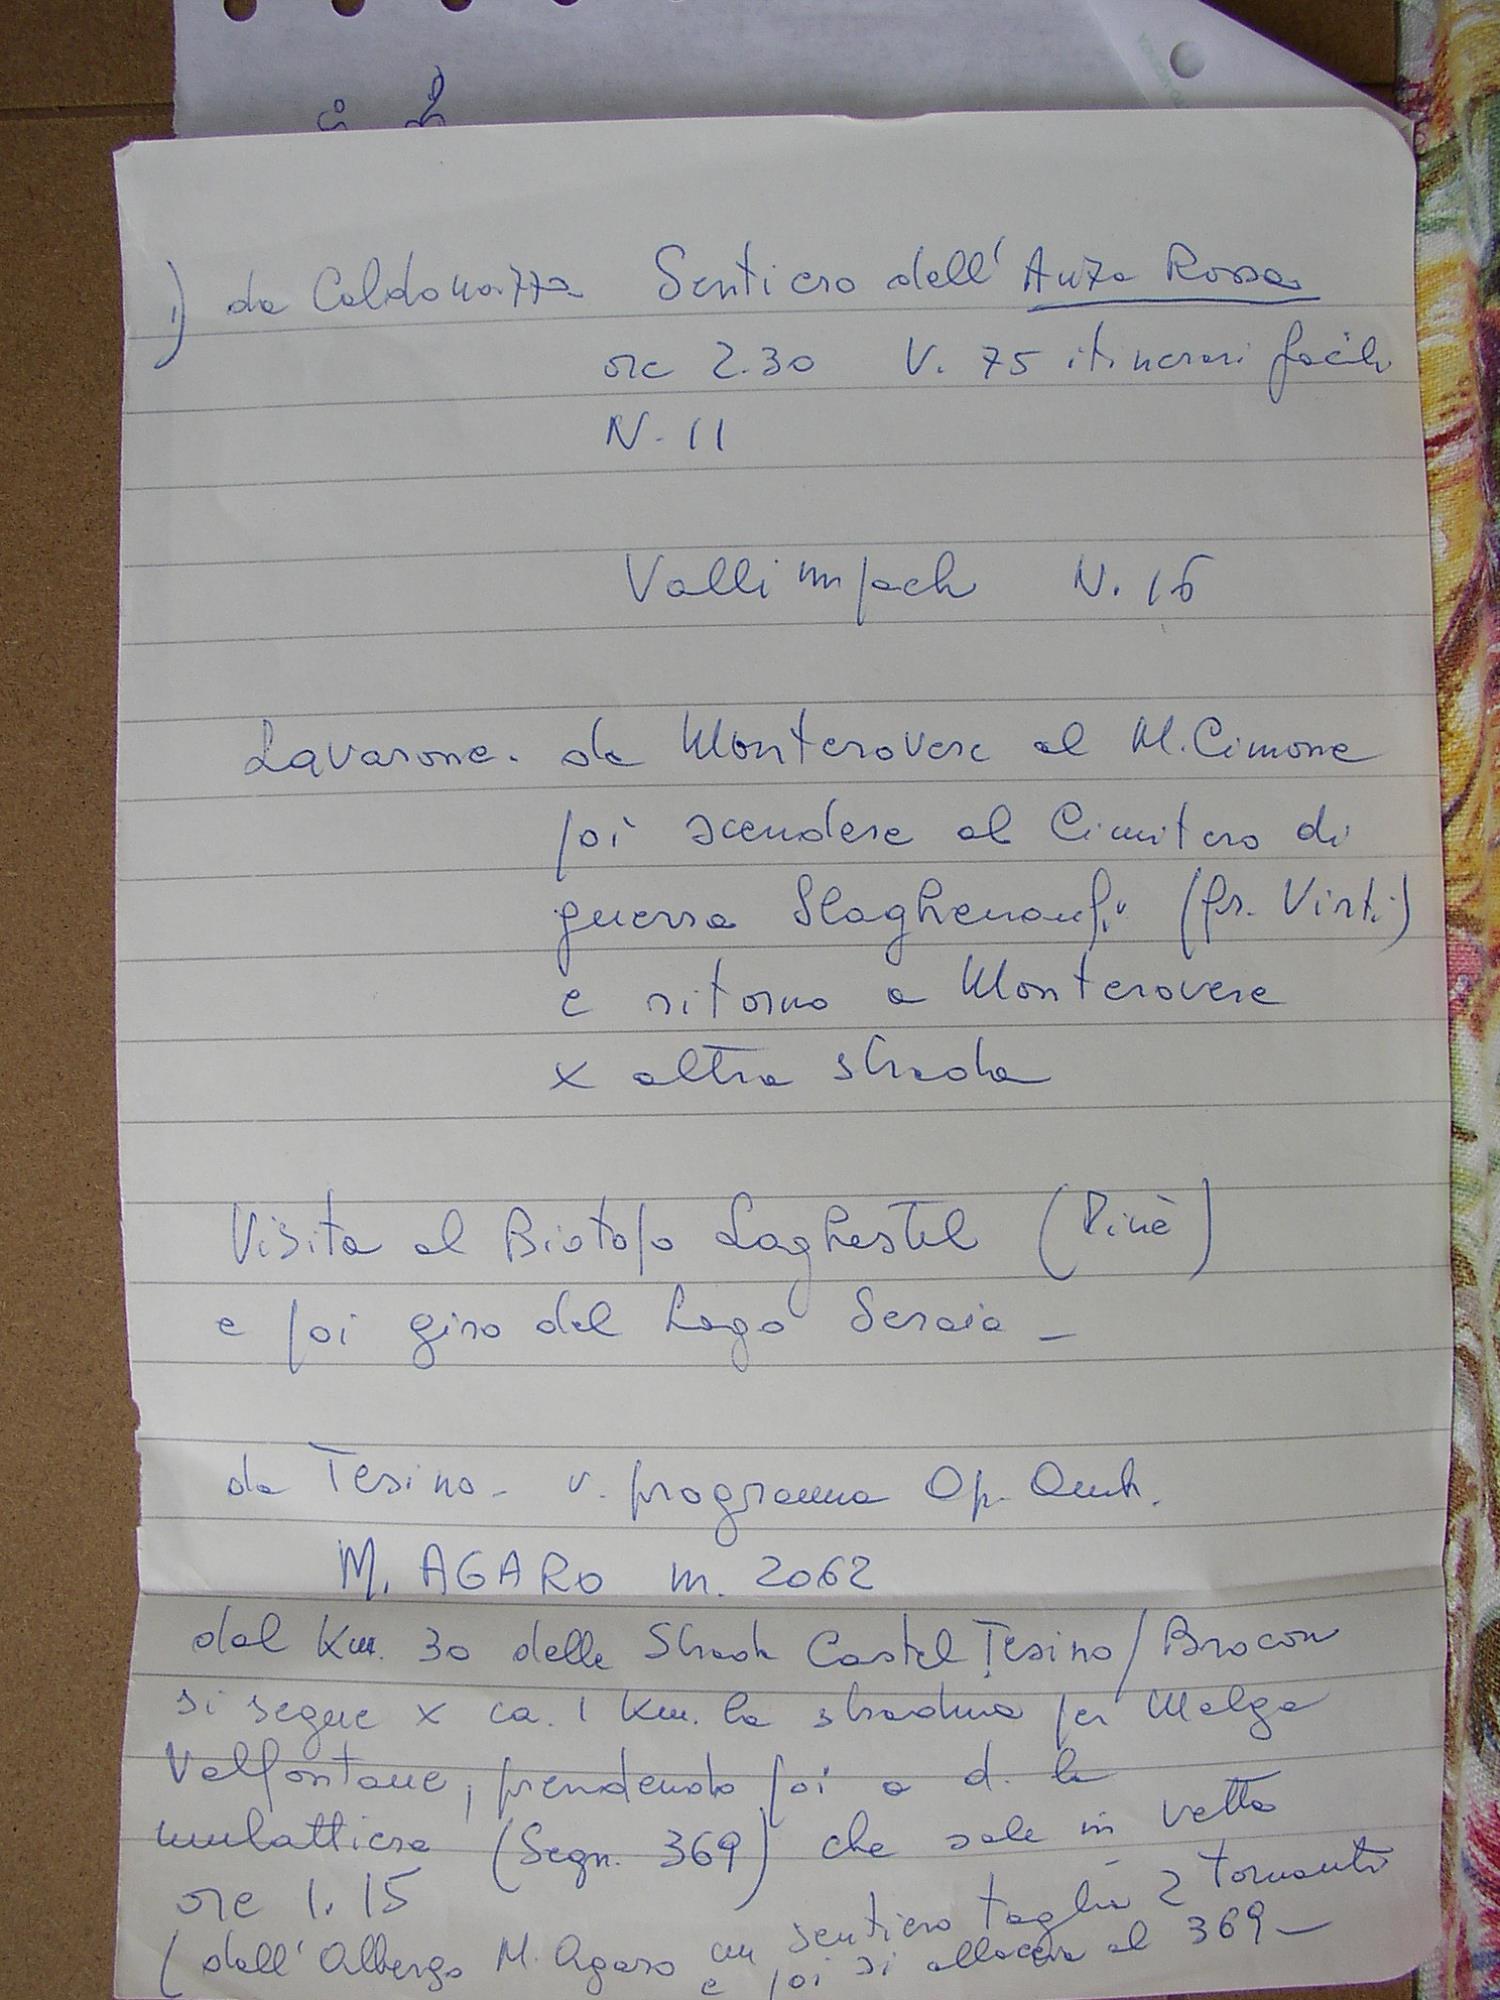 1) da Caldonazzo Sentiero dell'Anza Rossa
ore 2.30 V. 75 itinerari facili
N. 11
Vallimpach N. 16
Lavarone. da Monterovere al M. Cimone
poi scendere al Cimitero di
guerra Slaghenaufi (fr. Virti)
e ritorno a Monterovere
x altra strada
Visita al Biotopo Laghestel (Pinè)
e poi giro del Lago Seraia –
da Tesino – v. programma Op.
M. AGARO m. 2062
dal Km. 30 della Strada Castel Tesino/Brocon
si segue x ca. 1 Km. la stradina per Malga
Valfontane, prendendo poi a d. la
mulattiera (Segn. 369) che sale in vetta
ore 1.15
(dall'Albergo M. Agaro un sentiero taglia 2 tornanti
e poi si allaccia al 369 –